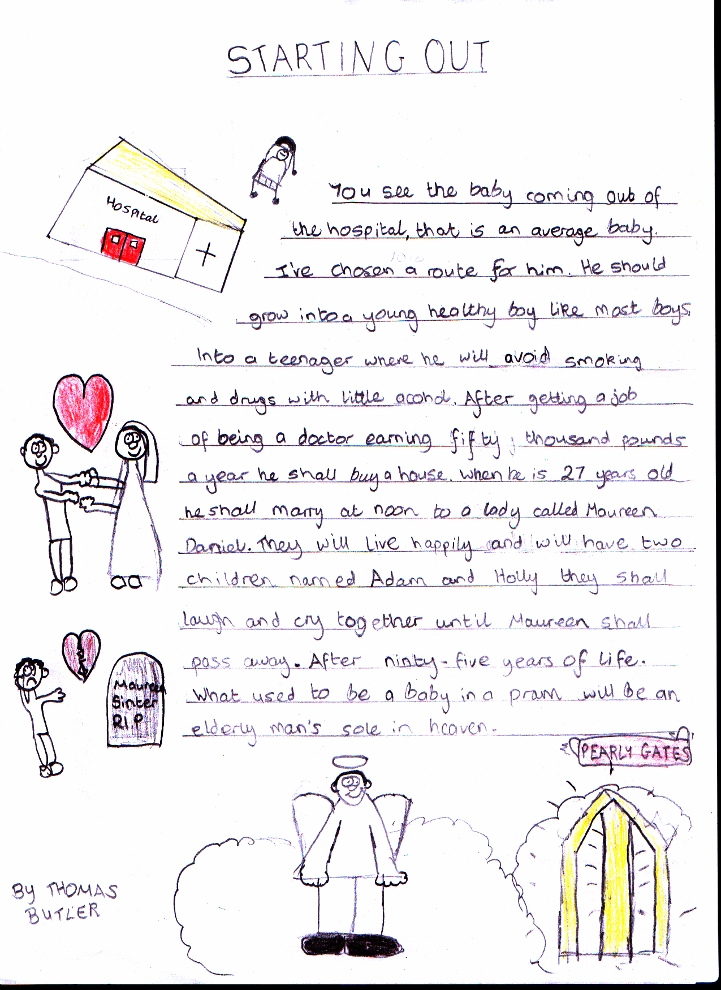 STARTING OUT
Hospital
You see the baby coming out of
the hospital, that is an average baby.
I've chosen a route for him. He should
grow into a young healthy boy like most boys.
Into a teenager where he will avoid smoking
and drugs with little acohol. After getting a job
of being a doctor earning fifty thousand pounds
a year he shall buy a house. When he is 27 years old
he shall marry at noon to a lady called Maureen
Daniel. They will live happily and will have two
children named Adam and Holly they shall
laugh and cry together until Maureen shall
pass away. After ninty-five years of life.
What used to be a baby in a pram will be an
elderly man's sole in heaven.
Maureen
Sinter
R.I.P
PEARLY GATES
By THOMAS
BUTLER